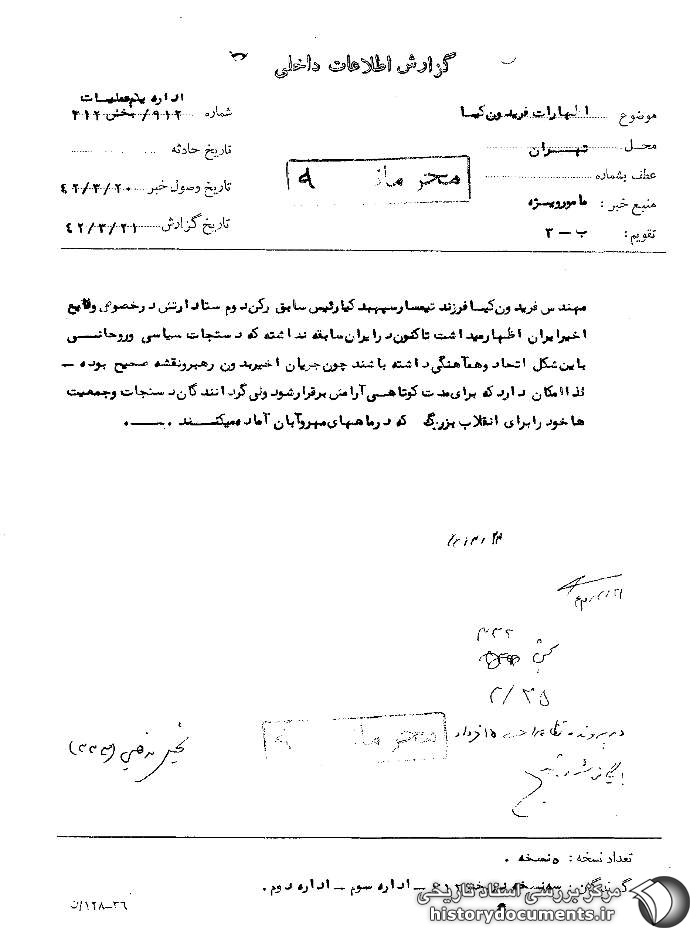 گزارش اطلاعات داخلی
موضوع اظهارات فریدون کیا
محل تهران
عطف بشماره
منبع خبر : مامور ویژه
تقویم : ب - ۳
اداره یکم عملیات
شماره ۹۱۲/ بخش ۳۱۲
تاریخ حادثه
تاریخ وصول خبر ۴۲/۳/۲۰
تاریخ گزارش ۴۲/۳/۲۱
محرمانه
مهندس فریدون کیا فرزند تیمسار سپهبد کیا رئیس سابق رکن دوم ستاد ارتش در خصوص وقایع
اخیر ایران اظهار میداشت تاکنون در ایران سابقه نداشته که دستجات سیاسی و روحانی
باین شکل اتحاد و هم‌آهنگی داشته باشند چون جریان اخیر بدون رهبر و نقشه صحیح بوده –
لذا امکان دارد که برای مدت کوتاهی آرامش برقرار شود ولی گردانندگان دستجات و جمعیت
ها خود را برای انقلاب بزرگ که در ماههای مهر و آبان آماده میکنند .
۳/۲۵
در پرونده تظاهرات ۱۵ خرداد
بایگانی شود
محرمانه
تعداد نسخه : ۵ نسخه .
گیرندگان : سه نسخه بخش ۳۱۲ – اداره سوم – اداره دوم .
۳۶–۱۲۸/ن
مرکز بررسی اسناد تاریخی
historydocuments.ir